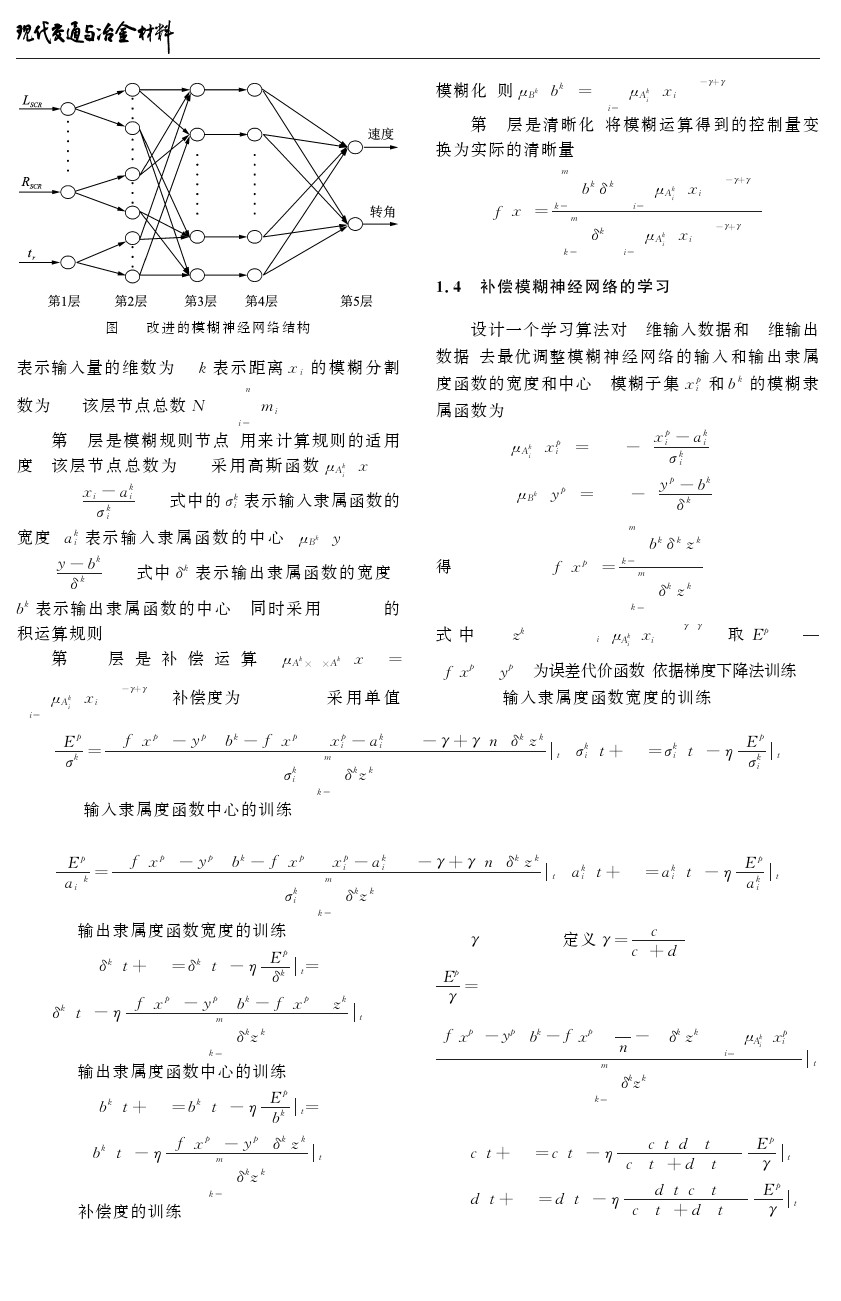 现代交通与冶金材料
L_SCR
R_SCR
t_r
速度
转角
第1层 第2层 第3层 第4层 第5层
图 改进的模糊神经网络结构
表示输入量的维数为 k 表示距离 x_i 的模糊分割
n
数为 该层节点总数 N m_i
i=
第 层是模糊规则节点 用来计算规则的适用
度 该层节点总数为 采用高斯函数 μ_{A_i^k} x
x_i − a_i^k / σ_i^k 式中的 σ_i^k 表示输入隶属函数的
宽度 a_i^k 表示输入隶属函数的中心 μ_{B^k} y
y − b^k / δ^k 式中 δ^k 表示输出隶属函数的宽度
b^k 表示输出隶属函数的中心 同时采用 的
积运算规则
第 层是补偿运算 μ_{A^k× ×A^k} x =
i= μ_{A_i^k} x_i ^{−γ+γ} 补偿度为 采用单值
模糊化 则 μ_{B^k} b^k = i= μ_{A_i^k} x_i ^{−γ+γ}
第 层是清晰化 将模糊运算得到的控制量变
换为实际的清晰量
f x = m k= b^k δ^k i= μ_{A_i^k} x_i ^{−γ+γ} / m k= δ^k i= μ_{A_i^k} x_i ^{−γ+γ}
1.4 补偿模糊神经网络的学习
设计一个学习算法对 维输入数据和 维输出
数据 去最优调整模糊神经网络的输入和输出隶属
度函数的宽度和中心 模糊子集 x_i^p 和 b^k 的模糊隶
属函数为
μ_{A_i^k} x_i^p = − x_i^p − a_i^k / σ_i^k
μ_{B^k} y^p = − y^p − b^k / δ^k
得 f x^p = m k= b^k δ^k z^k / m k= δ^k z^k
式中 z^k i μ_{A_i^k} x_i ^{γ γ} 取 E^p —
f x^p y^p 为误差代价函数 依据梯度下降法训练
输入隶属度函数宽度的训练
E^p / σ^k = f x^p − y^p b^k − f x^p x_i^p − a_i^k −γ+γ n δ^k z^k / σ_i^k m k= δ^k z^k |_t σ_i^k t+ = σ_i^k t − η E^p / σ_i^k |_t
输入隶属度函数中心的训练
E^p / a_i^k = f x^p − y^p b^k − f x^p x_i^p − a_i^k −γ+γ n δ^k z^k / σ_i^k m k= δ^k z^k |_t a_i^k t+ = a_i^k t − η E^p / a_i^k |_t
输出隶属度函数宽度的训练
δ^k t+ = δ^k t − η E^p / δ^k |_t =
δ^k t − η f x^p − y^p b^k − f x^p z^k / m k= δ^k z^k |_t
输出隶属度函数中心的训练
b^k t+ = b^k t − η E^p / b^k |_t =
b^k t − η f x^p − y^p δ^k z^k / m k= δ^k z^k |_t
补偿度的训练
γ 定义 γ = c / c + d
E^p / γ =
f x^p − y^p b^k − f x^p / n − δ^k z^k i= μ_{A_i^k} x_i^p / m k= δ^k z^k |_t
c t+ = c t − η c t d t / c t + d t E^p / γ |_t
d t+ = d t − η d t c t / c t + d t E^p / γ |_t